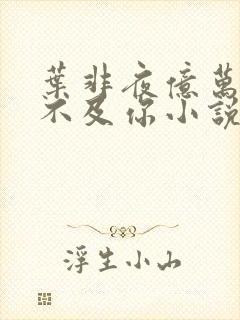 葉非夜億萬
不及你小說
浮生小山